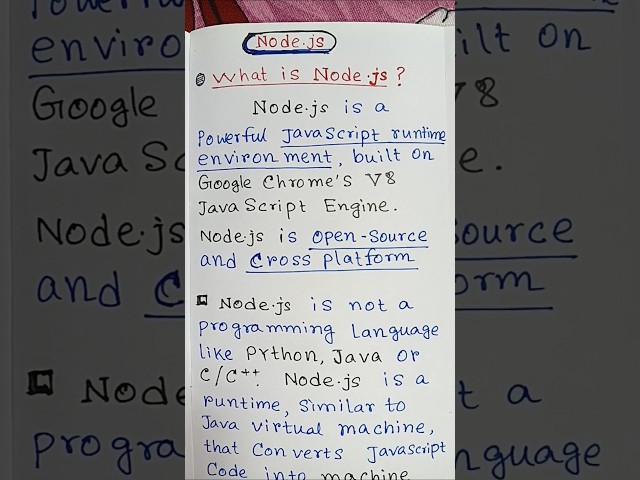 Node.js
What is Node.js ?
Node.js is a
Powerful JavaScript runtime
environment, built on
Google Chrome's V8
JavaScript Engine.
Node.js is open-source
and Cross platform
Node.js is not a
programming Language
like Python, Java or
C/C++. Node.js is a
runtime, Similar to
Java virtual machine,
that Converts JavaScript
Code into machine